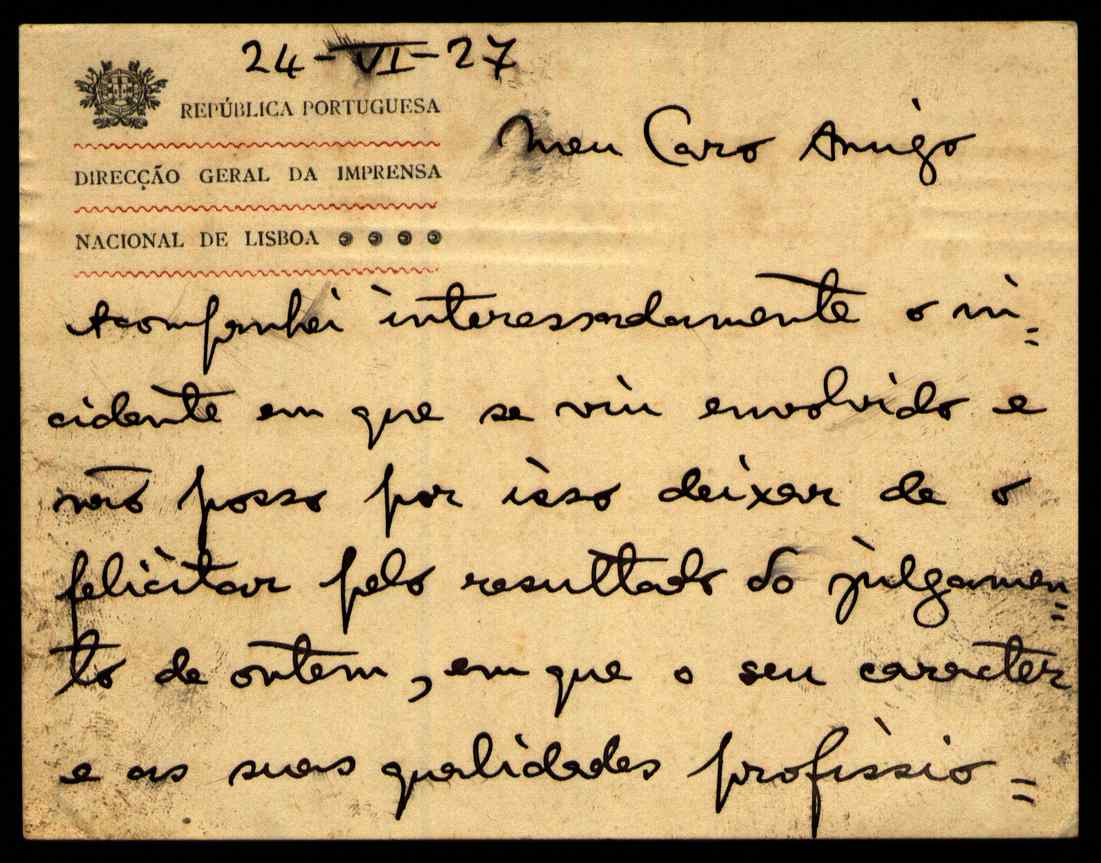 24-VI-27
REPÚBLICA PORTUGUESA
Meu Caro Amigo
DIRECÇÃO GERAL DA IMPRENSA
NACIONAL DE LISBOA
Acompanhei interessadamente o in=
cidente em que se viu envolvido e
não posso por isso deixar de o
felicitar pelo resultado do julgamen=
to de ontem, em que o seu caracter
e as suas qualidades profissio=